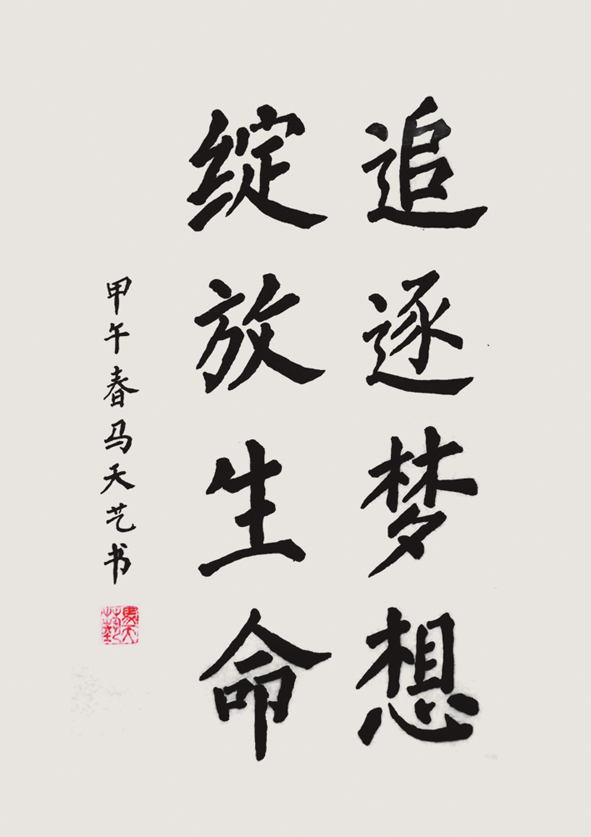 追逐梦想
绽放生命
甲午春马天艺书
馬天
藝